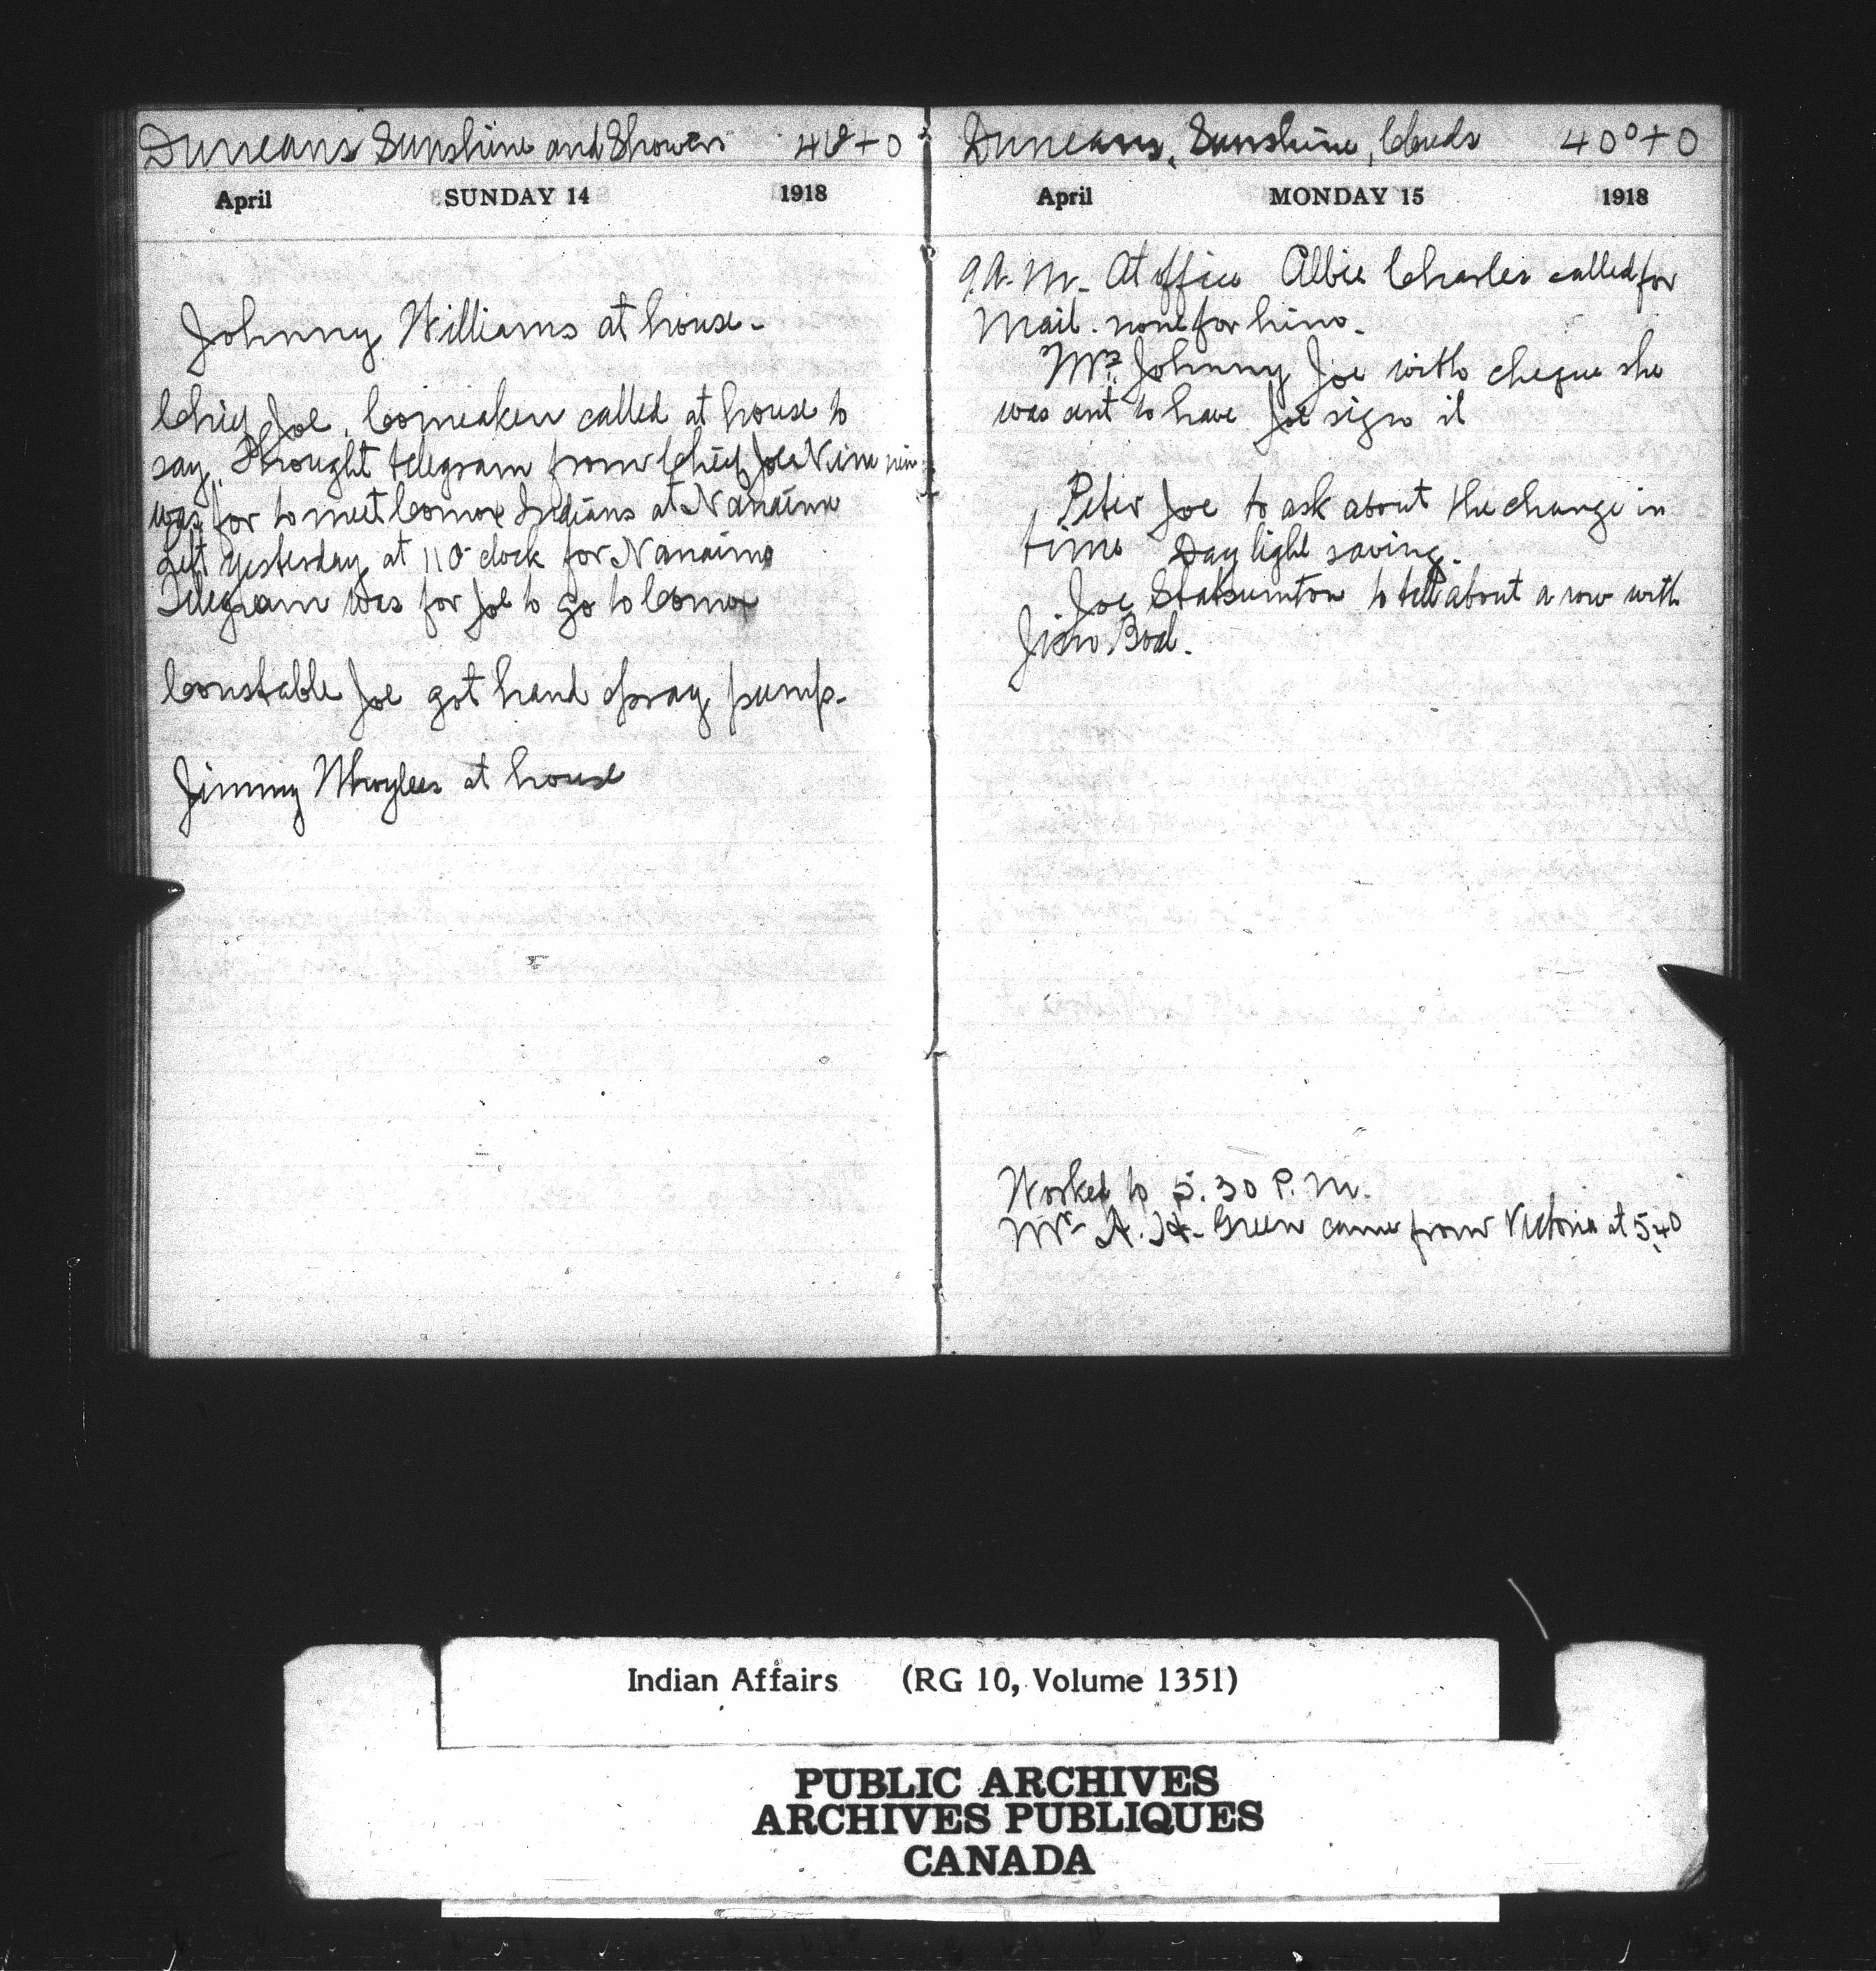 Duncans Sunshine and Showers 40°+0
April SUNDAY 14 1918
Johnny Williams at house.
Chief Joe, Comeaken called at house to
say, thought telegram from Chief Joe Nim nim
was for to meet Comox Indians at Nanaimo
Left yesterday at 11 O'clock for Nanaimo
Telegram was for Joe to go to Comox
Constable Joe got hand spray pump.
Jimmy at house
Duncans, Sunshine, Clouds 40°+0
April MONDAY 15 1918
9 A.M. At office Albie Charles called for
Mail. none for him.
Mrs. Johnny Joe with cheque she
was sent to have Joe sign it
Peter Joe to ask about the change in
time Day light saving.
Joe to tell about a row with
Jim
Worked to 5.30 P.M.
Mr A. H. Green came from Victoria at 5.40
Indian Affairs (RG 10, Volume 1351)
PUBLIC ARCHIVES
ARCHIVES PUBLIQUES
CANADA